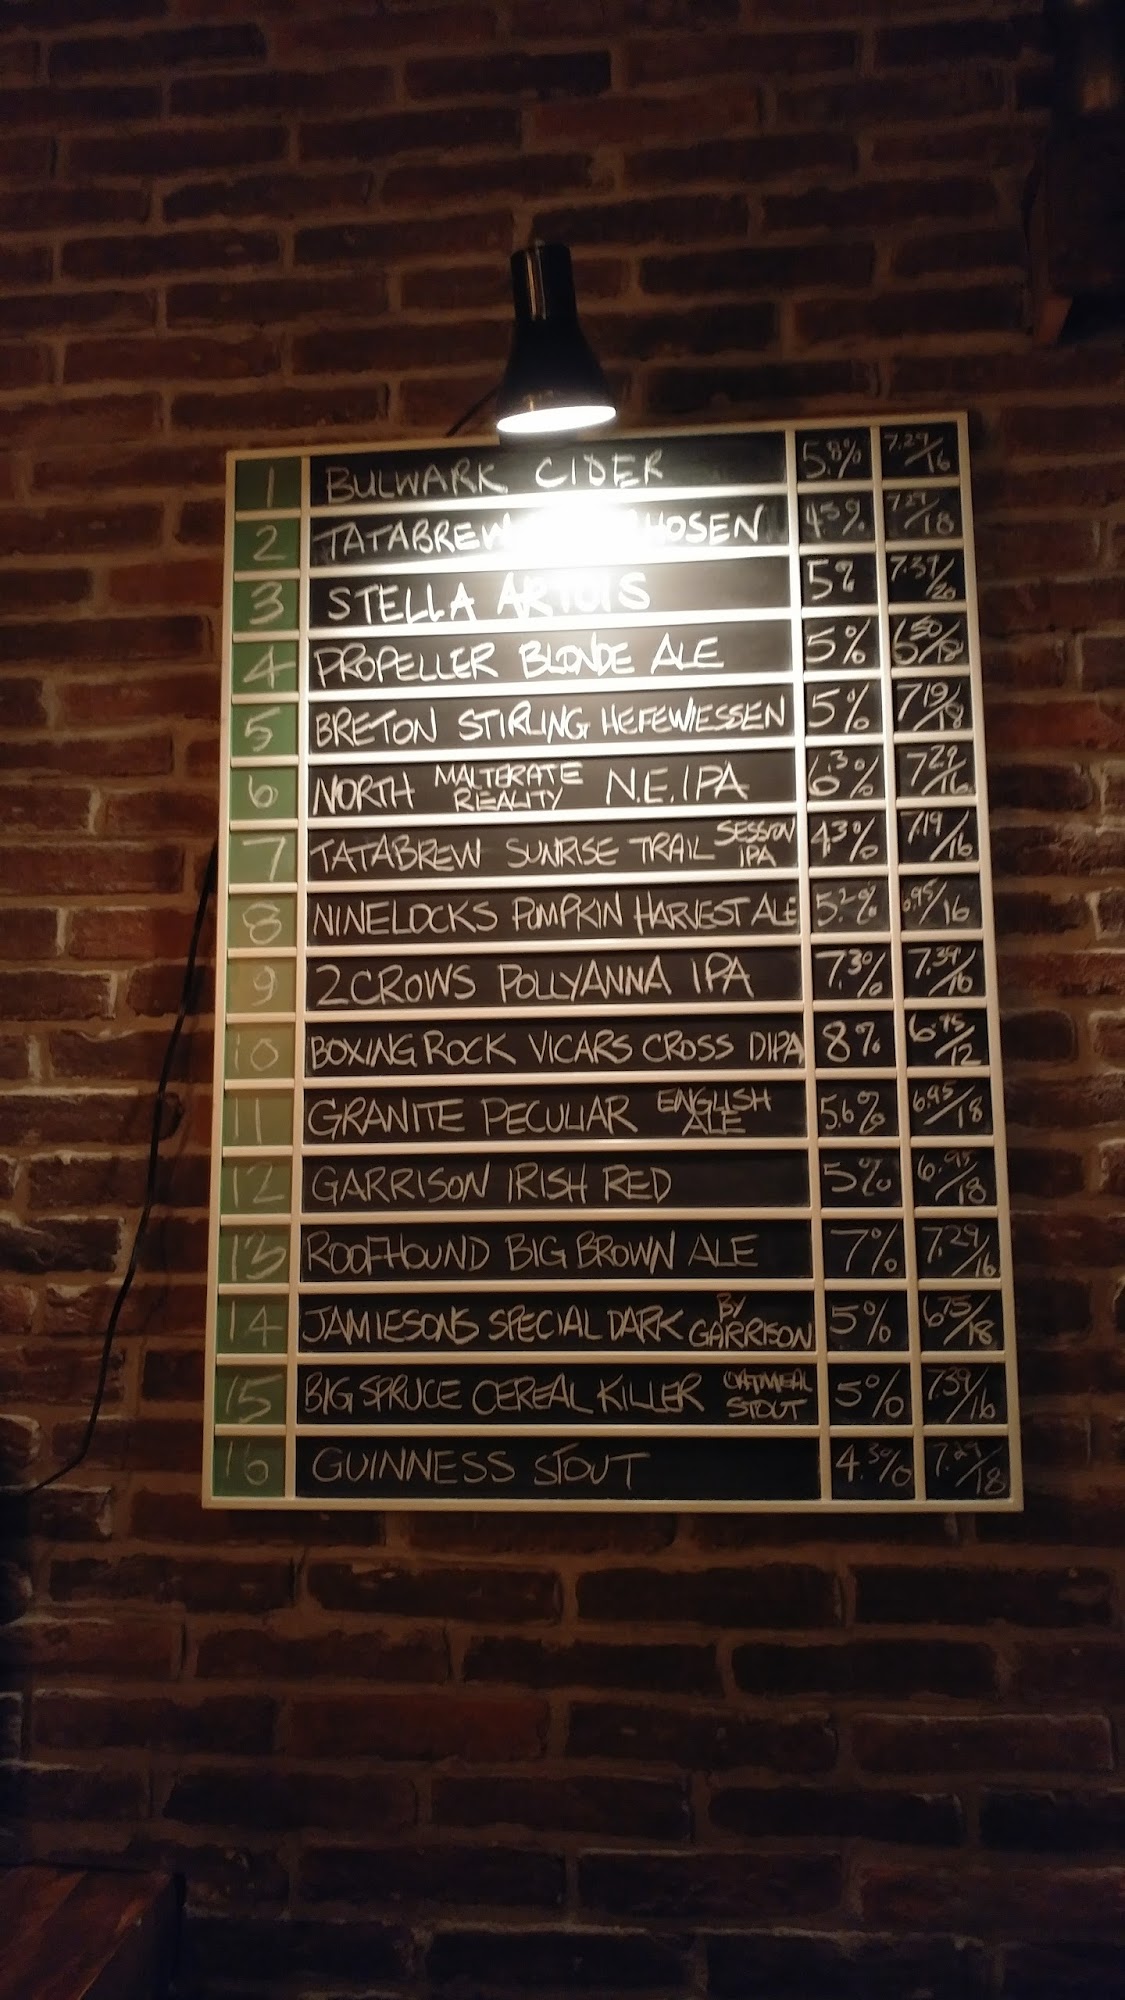 1 BULWARK CIDER 5.8% 7.29/16
2 TATABREW HOSEN 4.5% 7.29/18
3 STELLA ARTOIS 5% 7.39/20
4 PROPELLER BLONDE ALE 5% 6.50/18
5 BRETON STIRLING HEFEWIESSEN 5% 7.19/18
6 NORTH MALTERATE REALITY N.E.IPA 6.3% 7.29/16
7 TATABREW SUNRISE TRAIL SESSION IPA 4.3% 7.19/16
8 NINELOCKS PUMPKIN HARVEST ALE 5.2% 6.95/16
9 2CROWS POLLYANNA IPA 7.3% 7.39/16
10 BOXING ROCK VICARS CROSS DIPA 8% 6.75/12
11 GRANITE PECULIAR ENGLISH ALE 5.6% 6.95/18
12 GARRISON IRISH RED 5% 6.95/18
13 ROOFHOUND BIG BROWN ALE 7% 7.29/16
14 JAMIESONS SPECIAL DARK BY GARRISON 5% 6.75/18
15 BIG SPRUCE CEREAL KILLER OATMEAL STOUT 5% 7.39/16
16 GUINNESS STOUT 4.3% 7.29/18